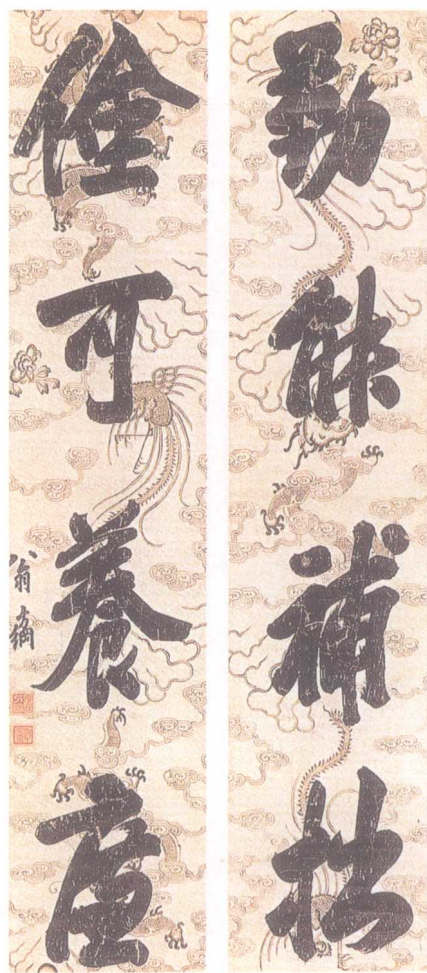 勤能補拙
儉可養廉
翁方綱